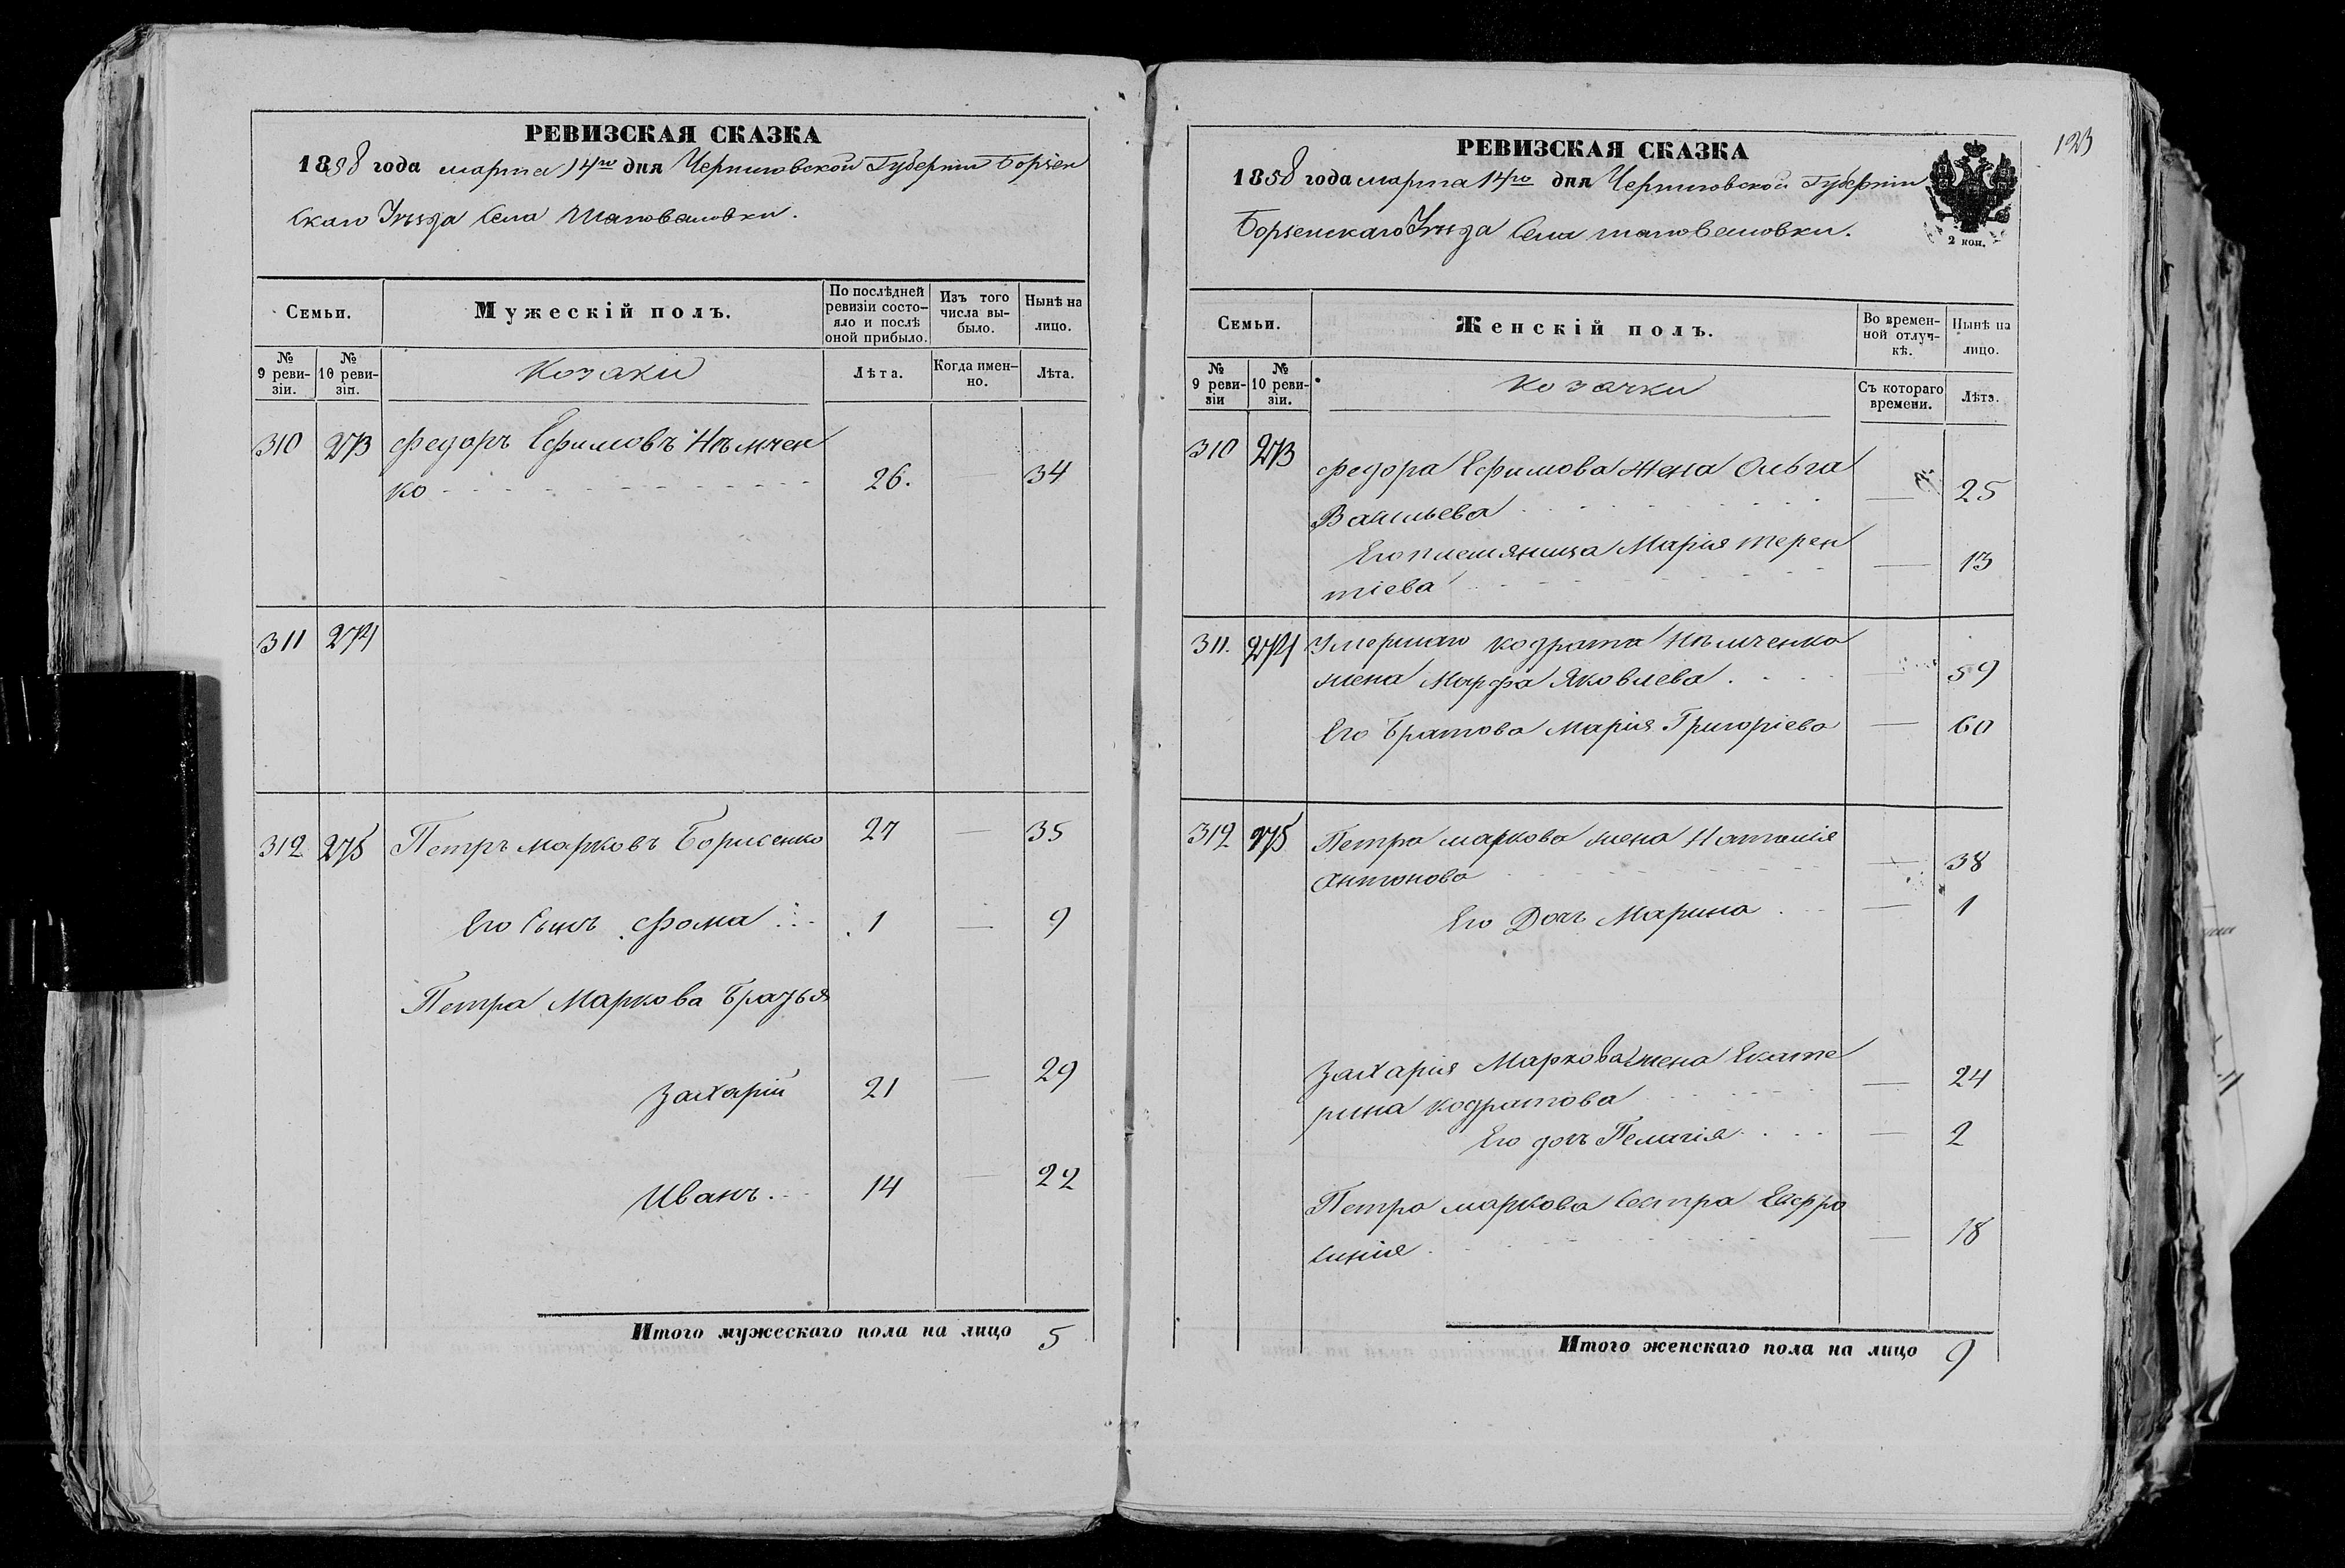 РЕВИЗСКАЯ СКАЗКА
1858 года марта 14го дня Черниговской Губерніи Борзен
скаго Уѣзда Села Шаповаловки.
Семьи.
Мужескій полъ.
По послѣдней ревизіи состояло и послѣ оной прибыло.
Изъ того числа выбыло.
Нынѣ на лицо.
№ 9 ревизіи.
№ 10 ревизіи.
Козаки
Лѣта.
Когда именно.
Лѣта.
310 273 Федоръ Ефимовъ Нѣмчен
ко 26. — 34
311 274
312 275 Петръ Марковъ Борисенко 27 — 35
Его Сынъ Фома 1 — 9
Петра Маркова Братья
Захарій 21 — 29
Иванъ. 14 — 22
Итого мужескаго пола на лицо 5
123
РЕВИЗСКАЯ СКАЗКА
1858 года марта 14го дня Черниговской Губерніи
Борзенскаго Уѣзда Села Шаповаловки.
2 коп.
Семьи.
Женскій полъ.
Во временной отлучкѣ.
Нынѣ на лицо.
№ 9 ревизіи
№ 10 ревизіи.
Козачки
Съ котораго времени.
Лѣта.
310 273 Федора Ефимова Жена Ольга
Васильева — 25
Его племяница Марія Терен
тіева — 13
311. 274 Умершаго Кодрата Нѣмченка
жена Марфа Яковлева. — 59
Его Братова Марія Григоріева — 60
312 275 Петра Маркова жена Наталія
Антонова — 38
Его Дочь Марина — 1
Захарія Маркова жена Екате
рина Кодратова — 24
Его дочь Пелагія — 2
Петра Маркова Сестра Евфро
синія — 18
Итого женскаго пола на лицо 9